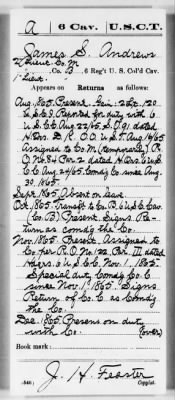 A | 6 Cav. | U.S.C.T.
James S. Andrews
2' Lieut. Co. M
1' Lieut.
Co. B, 6 Reg't U. S. Col'd Cav.
Appears on Returns as follows:
Aug. 1865. Present.
for duty with 6
U.S.C.C. Aug 22/65. S.O. 91 dated
Assigned to Co. M (temporarily) R.
O. No. 84 Par 2 dated Hdrs 6 U.S.
C.C. Aug 24/65. Comdg Co. since Aug.
30, 1865.
Sept. 1865. Absent on leave
Oct. 1865. Transf'd to Co. B, 6 U.S.C.Cav.
(Co. B) Present. Signs Re-
turn as comdg the Co.
Nov. 1865. Present. Assigned to
Co. per R.O. No. 122, Par. III dated
Hdqrs. 6 U.S.C.C. Nov. 1, 1865.
Special duty, Comdg Co. C
since Nov. 1st 1865. Signs
Return of Co. C as Comdg
the Co.
Dec. 1865. Present on duty
with Co. (over)
Book mark:
(546) J. H. Feaster
Copyist.